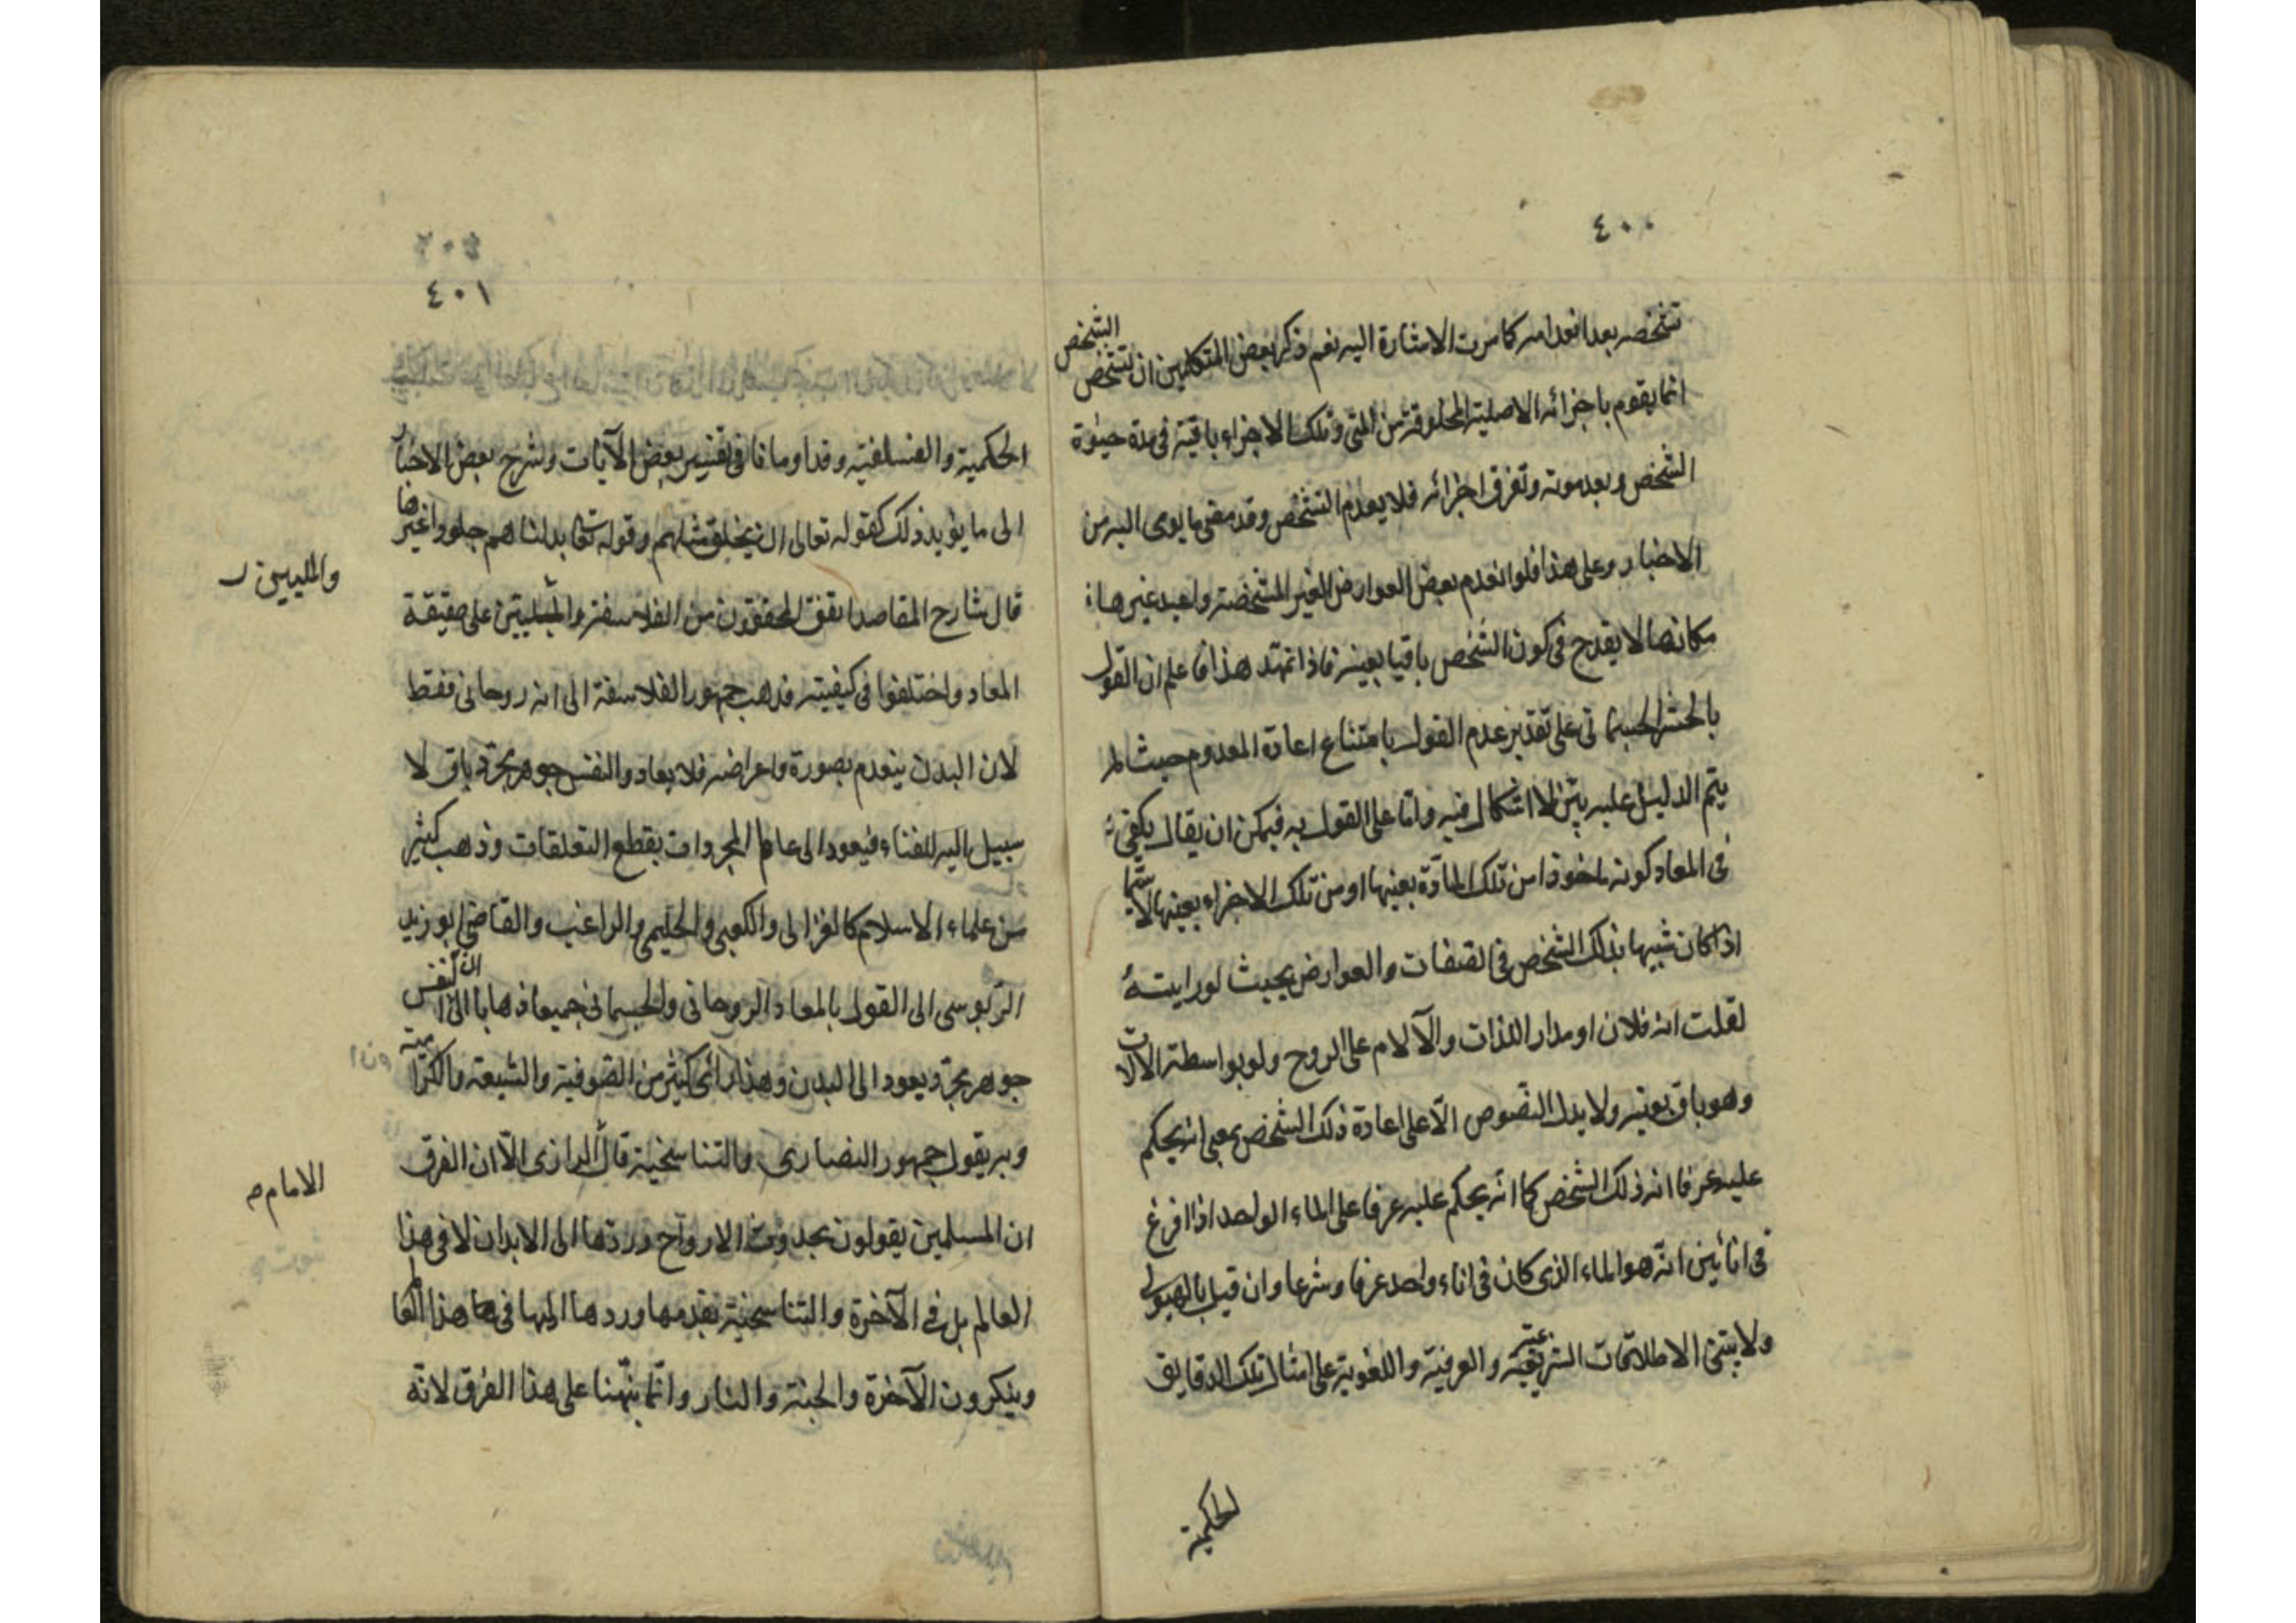 ٤٠٠
تشخصه بعد انعدامه كما مرت الاشارة اليه نعم ذكر بعض المتكلمين ان تشخص الشخص
انما يقوم باجزائه الاصلية المخلوقة من المنى وتلك الاجزاء باقية فى مدة حيٰوة
الشخص وبعد موته وتفرق اجزائه فلا يعدم التشخص وقد مضى ما يومى اليه من
الاخبار وعلى هذا فلو انعدم بعض العوارض الغير المشخصة واعيد غيرها
مكانها لا يقدح فى كون الشخص باقيا بعينه فاذا تمهد هذا فاعلم ان القول
بالحشر الجسمانى على تقدير عدم القول بامتناع اعادة المعدوم حيث لم
يتم الدليل عليه بيّن لا اشكال فيه وامّا على القول به فيمكن ان يقال يكفى
فى المعاد كونه ماخوذا من تلك المادّة بعينها او من تلك الاجزاء بعينها لا سيّما
اذا كان شبيها بذلك الشخص فى الصفات والعوارض بحيث لو رايته
لقلت انه فلان او مدار اللذات والآلام على الروح ولو بواسطة الآلات
وهو باق بعينه ولا يدل النصوص الّا على اعادة ذلك الشخص بمعنى انه يحكم
عليه عرفا انه ذلك الشخص كما انّه يحكم عليه عرفا على الماء الواحد اذا افرغ
فى انائين انّه هو الماء الذى كان فى اناء واحد عرفا وشرعا وان قيل بالهيولى
ولا يبتنى الاطلاقات الشرعية والعرفية واللغوية على امثال تلك الدقايق
الحكمية
٤٠١
الحكمية والفسلفية وقد اومانا فى تفسير بعض الآيات وشرح بعض الاخبار
الى ما يؤيد ذلك كقوله تعالى ان يخلق مثلهم وقوله تعا بدلناهم جلودا غيرها
قال شارح المقاصد اتفق المحققون من الفلاسفة والمليين على حقيقة
والمليين
المعاد واختلفوا فى كيفيته فذهب جمهور الفلاسفة الى انه روحانى فقط
لان البدن ينعدم بصورة واعراضه فلا يعاد والنفس جوهر مجرّد باق لا
سبيل اليه للفناء فيعود الى عالم المجردات بقطع التعلقات وذهب كثير
من علماء الاسلام كالغزالى والكعبى والحليمى والراغب والقاضى ابو زيد
الدّبوسى الى القول بالمعاد الروحانى والجسمانى جميعا ذهابا الى ان النفس
جوهر مجرّد يعود الى البدن وهذا رأى كثير من الصّوفية والشيعة والكرّامية
وبه يقول جمهور النصارى والتناسخية قال الرازى الّا ان الفرق
الامام
ان المسلمين يقولون بحدوث الارواح وردّها الى الابدان لا فى هذا
العالم بل فى الآخرة والتناسخية بقدمها وردها اليها فى هذا العالم
وينكرون الآخرة والجنة والنار وانّما نبّهنا على هذا الفرق لانّه